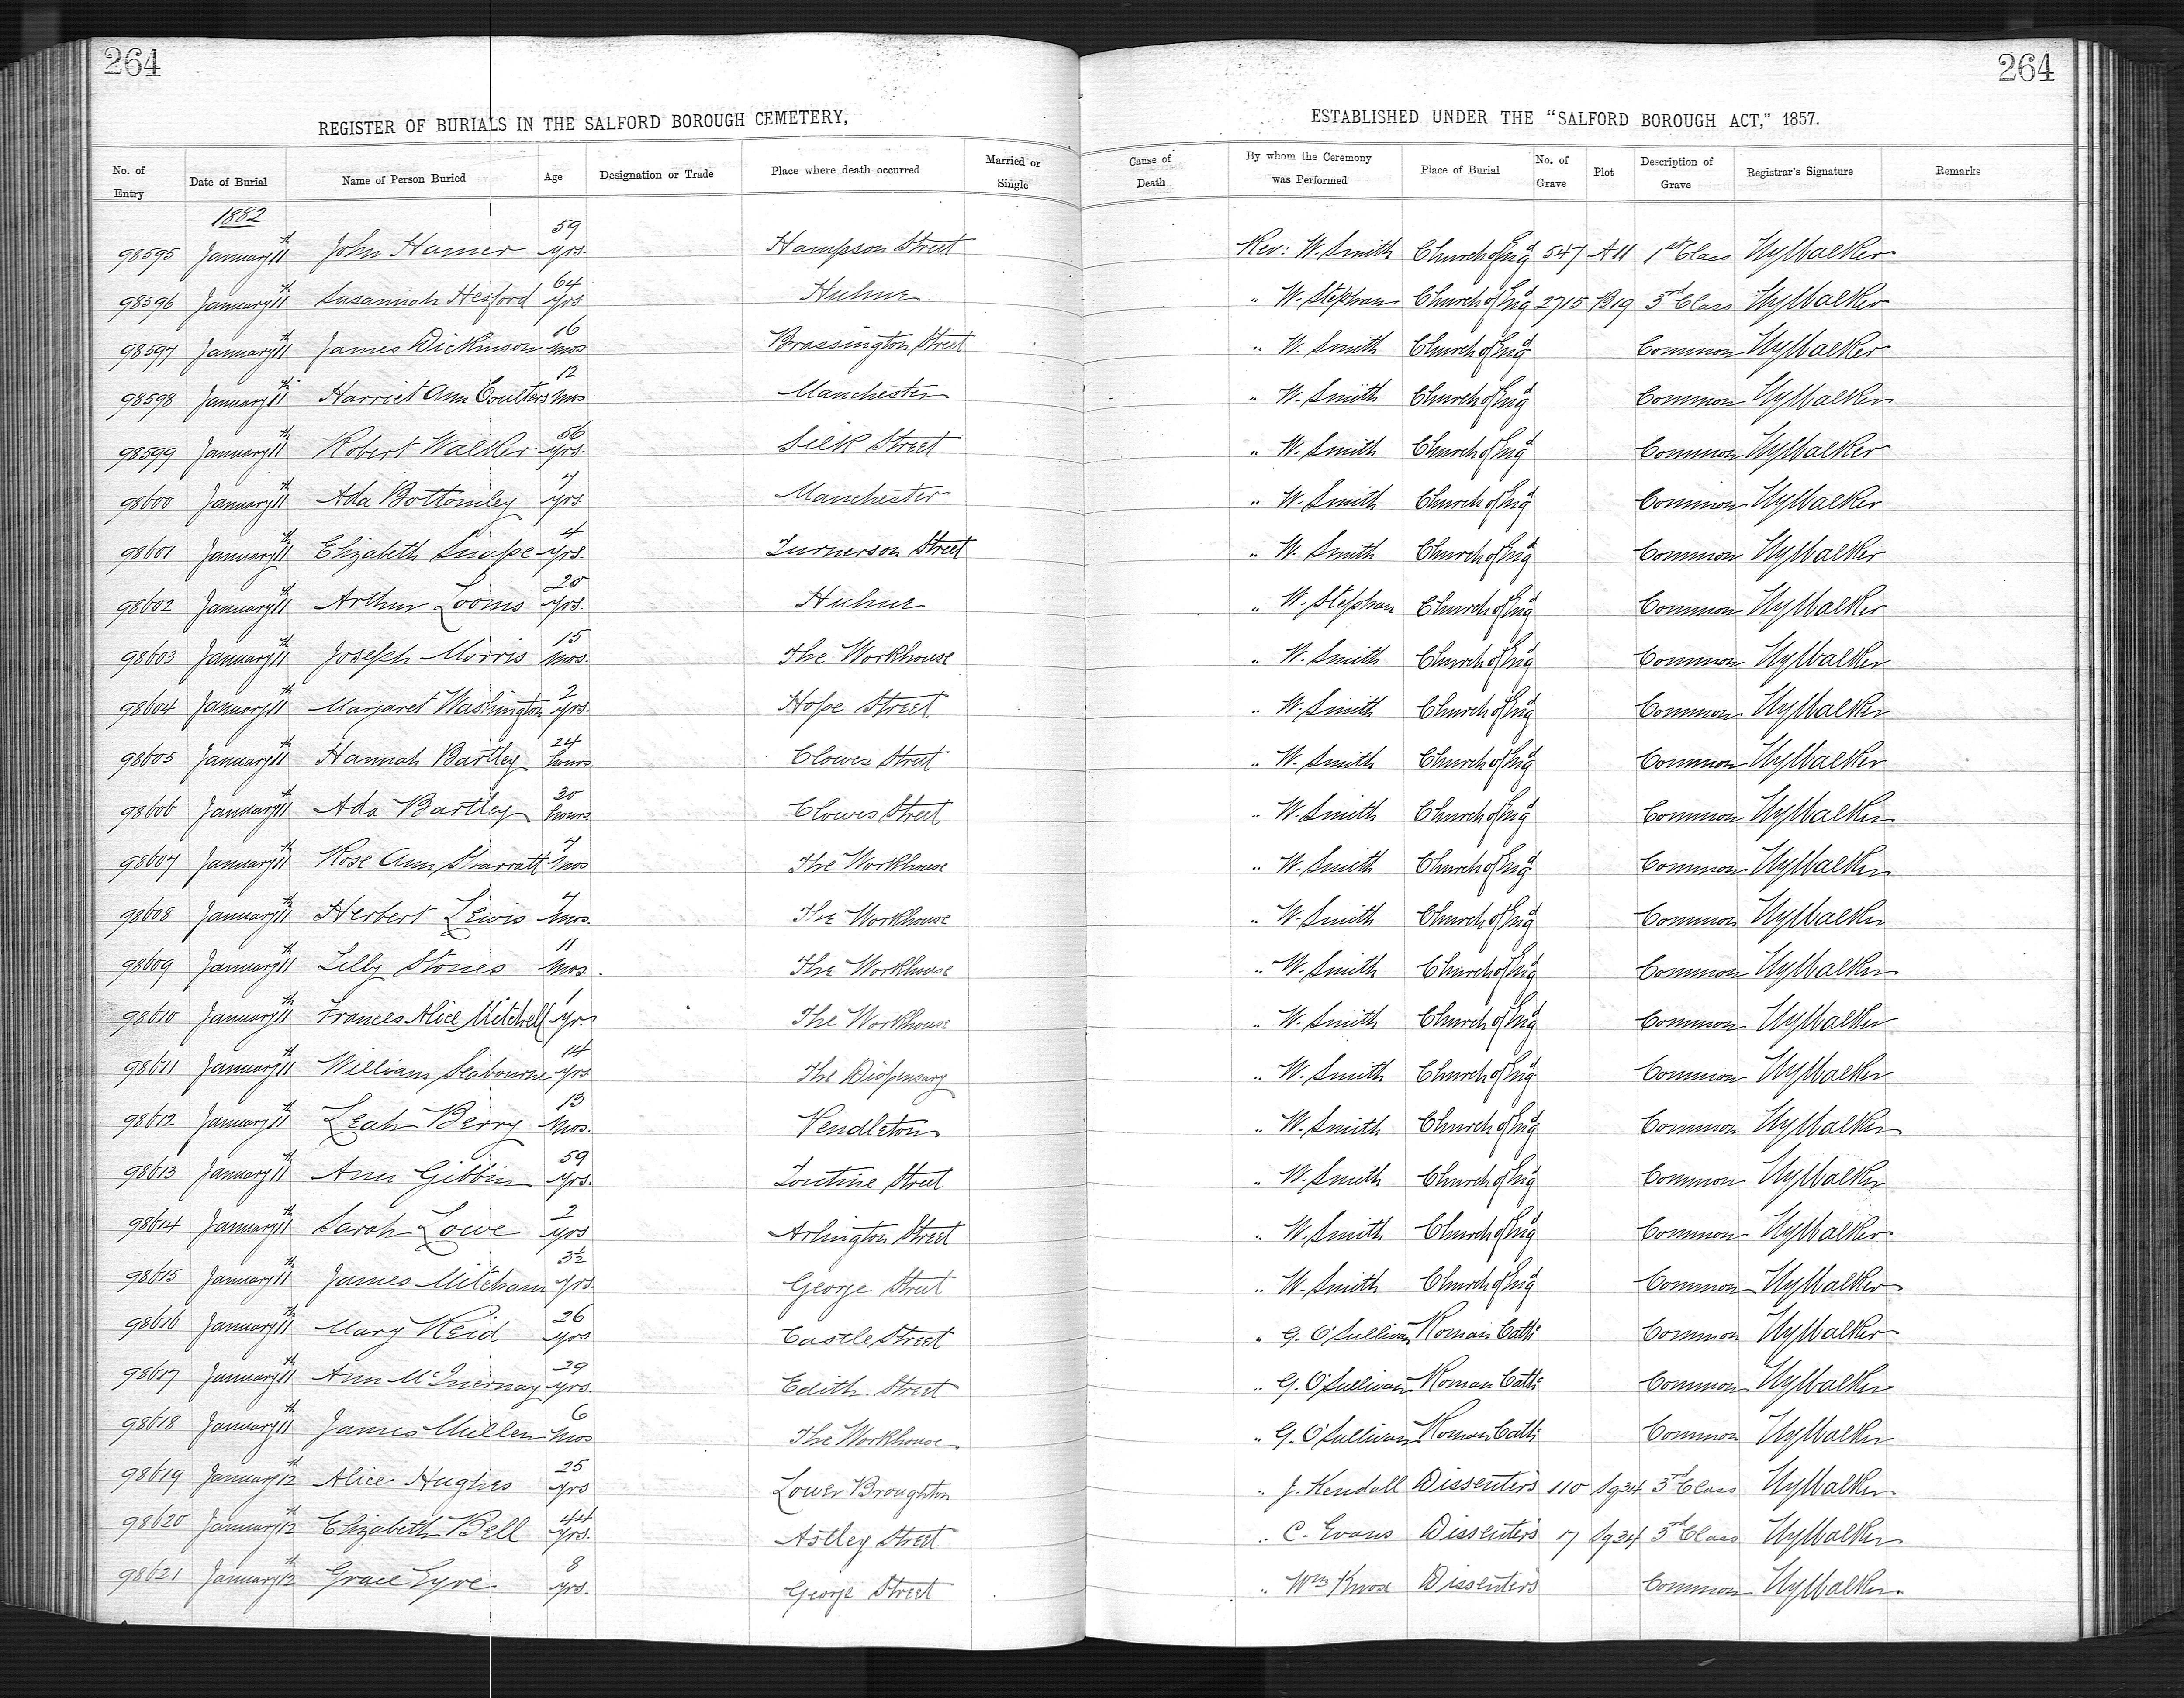 264 264
REGISTER OF BURIALS IN THE SALFORD BOROUGH CEMETERY, ESTABLISHED UNDER THE "SALFORD BOROUGH ACT," 1857.
No. of Entry Date of Burial Name of Person Buried Age Designation or Trade Place where death occurred Married or Single Cause of Death By whom the Ceremony was Performed Place of Burial No. of Grave Plot Description of Grave Registrar's Signature Remarks
1882
98595 January 11th John Hamer 59 yrs. Hampson Street Rev: W. Smith Church of Engd 547 A11 1st Class Hy Walker
98596 January 11th Susannah Hesford 64 yrs Hulme " W. Stephan Church of Engd 2715 B19 3rd Class Hy Walker
98597 January 11th James Dickinson 16 mos Brassington Street " W. Smith Church of Engd Common Hy Walker
98598 January 11th Harriet Ann Coulters 12 mos Manchester " W. Smith Church of Engd Common Hy Walker
98599 January 11th Robert Walker 56 yrs. Silk Street " W. Smith Church of Engd Common Hy Walker
98600 January 11th Ada Bottomley 7 yrs Manchester " W. Smith Church of Engd Common Hy Walker
98601 January 11th Elizabeth Snape 4 yrs. Turnerson Street " W. Smith Church of Engd Common Hy Walker
98602 January 11th Arthur Looms 20 yrs. Hulme " W. Stephan Church of Engd Common Hy Walker
98603 January 11th Joseph Morris 15 mos. The Workhouse " W. Smith Church of Engd Common Hy Walker
98604 January 11th Margaret Washington 2 yrs. Hope Street " W. Smith Church of Engd Common Hy Walker
98605 January 11th Hannah Bartley 24 hours. Clowes Street " W. Smith Church of Engd Common Hy Walker
98606 January 11th Ada Bartley 30 hours Clowes Street " W. Smith Church of Engd Common Hy Walker
98607 January 11th Rose Ann Sharratt 7 mos The Workhouse " W. Smith Church of Engd Common Hy Walker
98608 January 11th Herbert Lewis 7 mos. The Workhouse " W. Smith Church of Engd Common Hy Walker
98609 January 11th Lilly Stones 11 mos. The Workhouse " W. Smith Church of Engd Common Hy Walker
98610 January 11th Frances Alice Mitchell 1 yr. The Workhouse " W. Smith Church of Engd Common Hy Walker
98611 January 11th William Seabourne 14 yrs The Dispensary " W. Smith Church of Engd Common Hy Walker
98612 January 11th Leah Berry 13 mos. Pendleton " W. Smith Church of Engd Common Hy Walker
98613 January 11th Ann Gibbin 59 yrs. Tontine Street " W. Smith Church of Engd Common Hy Walker
98614 January 11th Sarah Lowe 2 yrs Arlington Street " W. Smith Church of Engd Common Hy Walker
98615 January 11th James Mitcham 3½ yrs. George Street " W. Smith Church of Engd Common Hy Walker
98616 January 11th Mary Reid 26 yrs Castle Street " G. O'Sullivan Roman Cath: Common Hy Walker
98617 January 11th Ann McInernay 29 yrs. Edith Street " G. O'Sullivan Roman Cath: Common Hy Walker
98618 January 11th James Mullen 6 mos The Workhouse " G. O'Sullivan Roman Cath: Common Hy Walker
98619 January 12th Alice Hughes 25 yrs Lower Broughton " J. Kendall Dissenters 110 3rd Class Hy Walker
98620 January 12th Elizabeth Bell 44 yrs. Astley Street " C. Evans Dissenters 17 3rd Class Hy Walker
98621 January 12th Grace Eyre 8 yrs. George Street " Wm Knox Dissenters Common Hy Walker